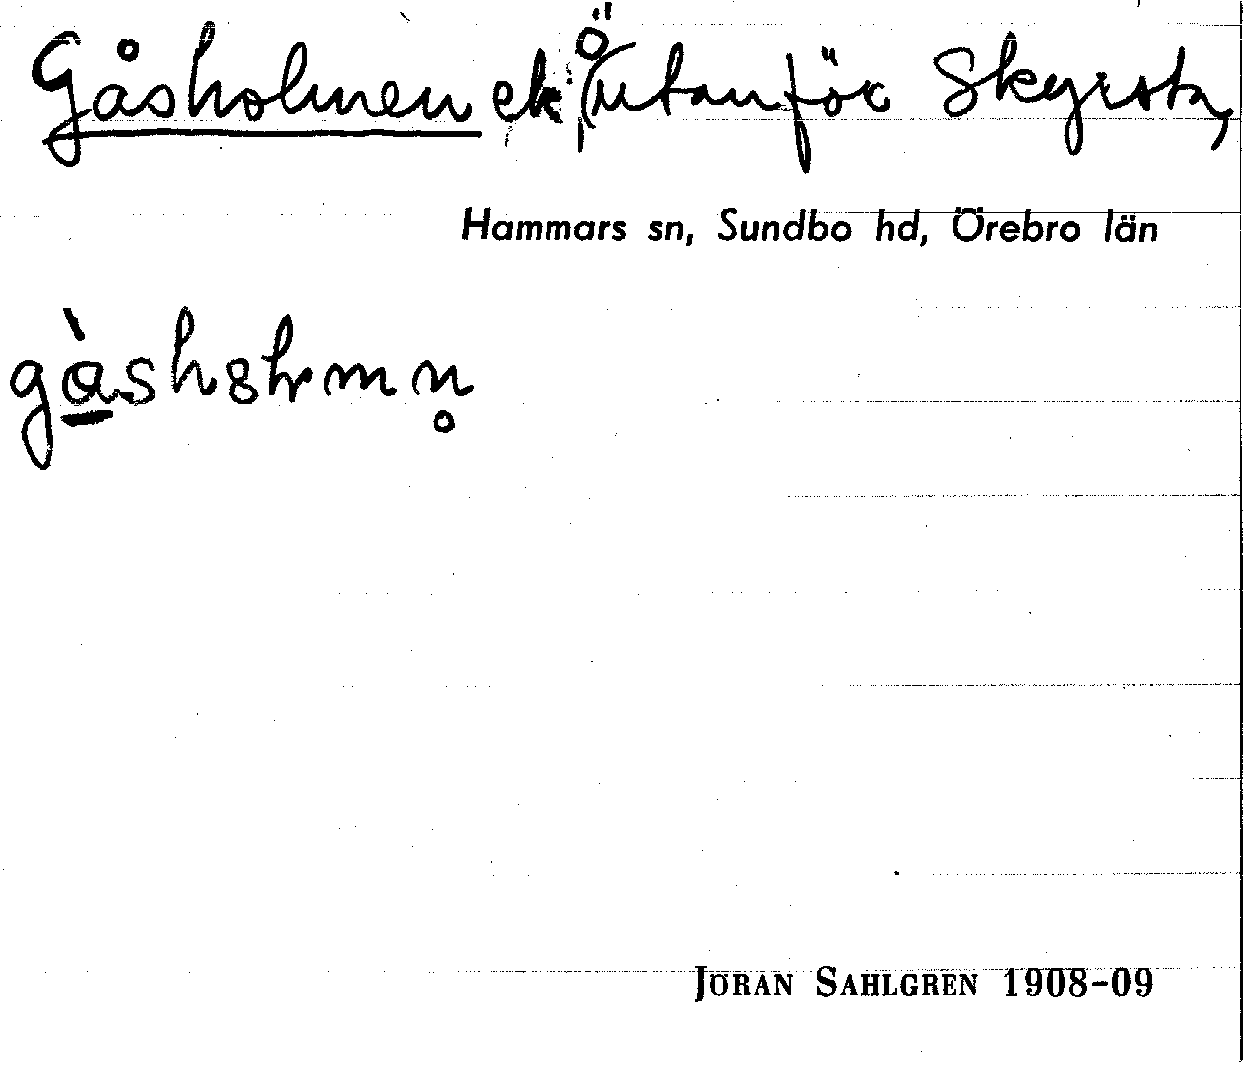 Gåsholmen ek. ö (utanför Skyrsta,
Hammars sn, Sundbo hd, Örebro län
JÖRAN SAHLGREN 1908-09